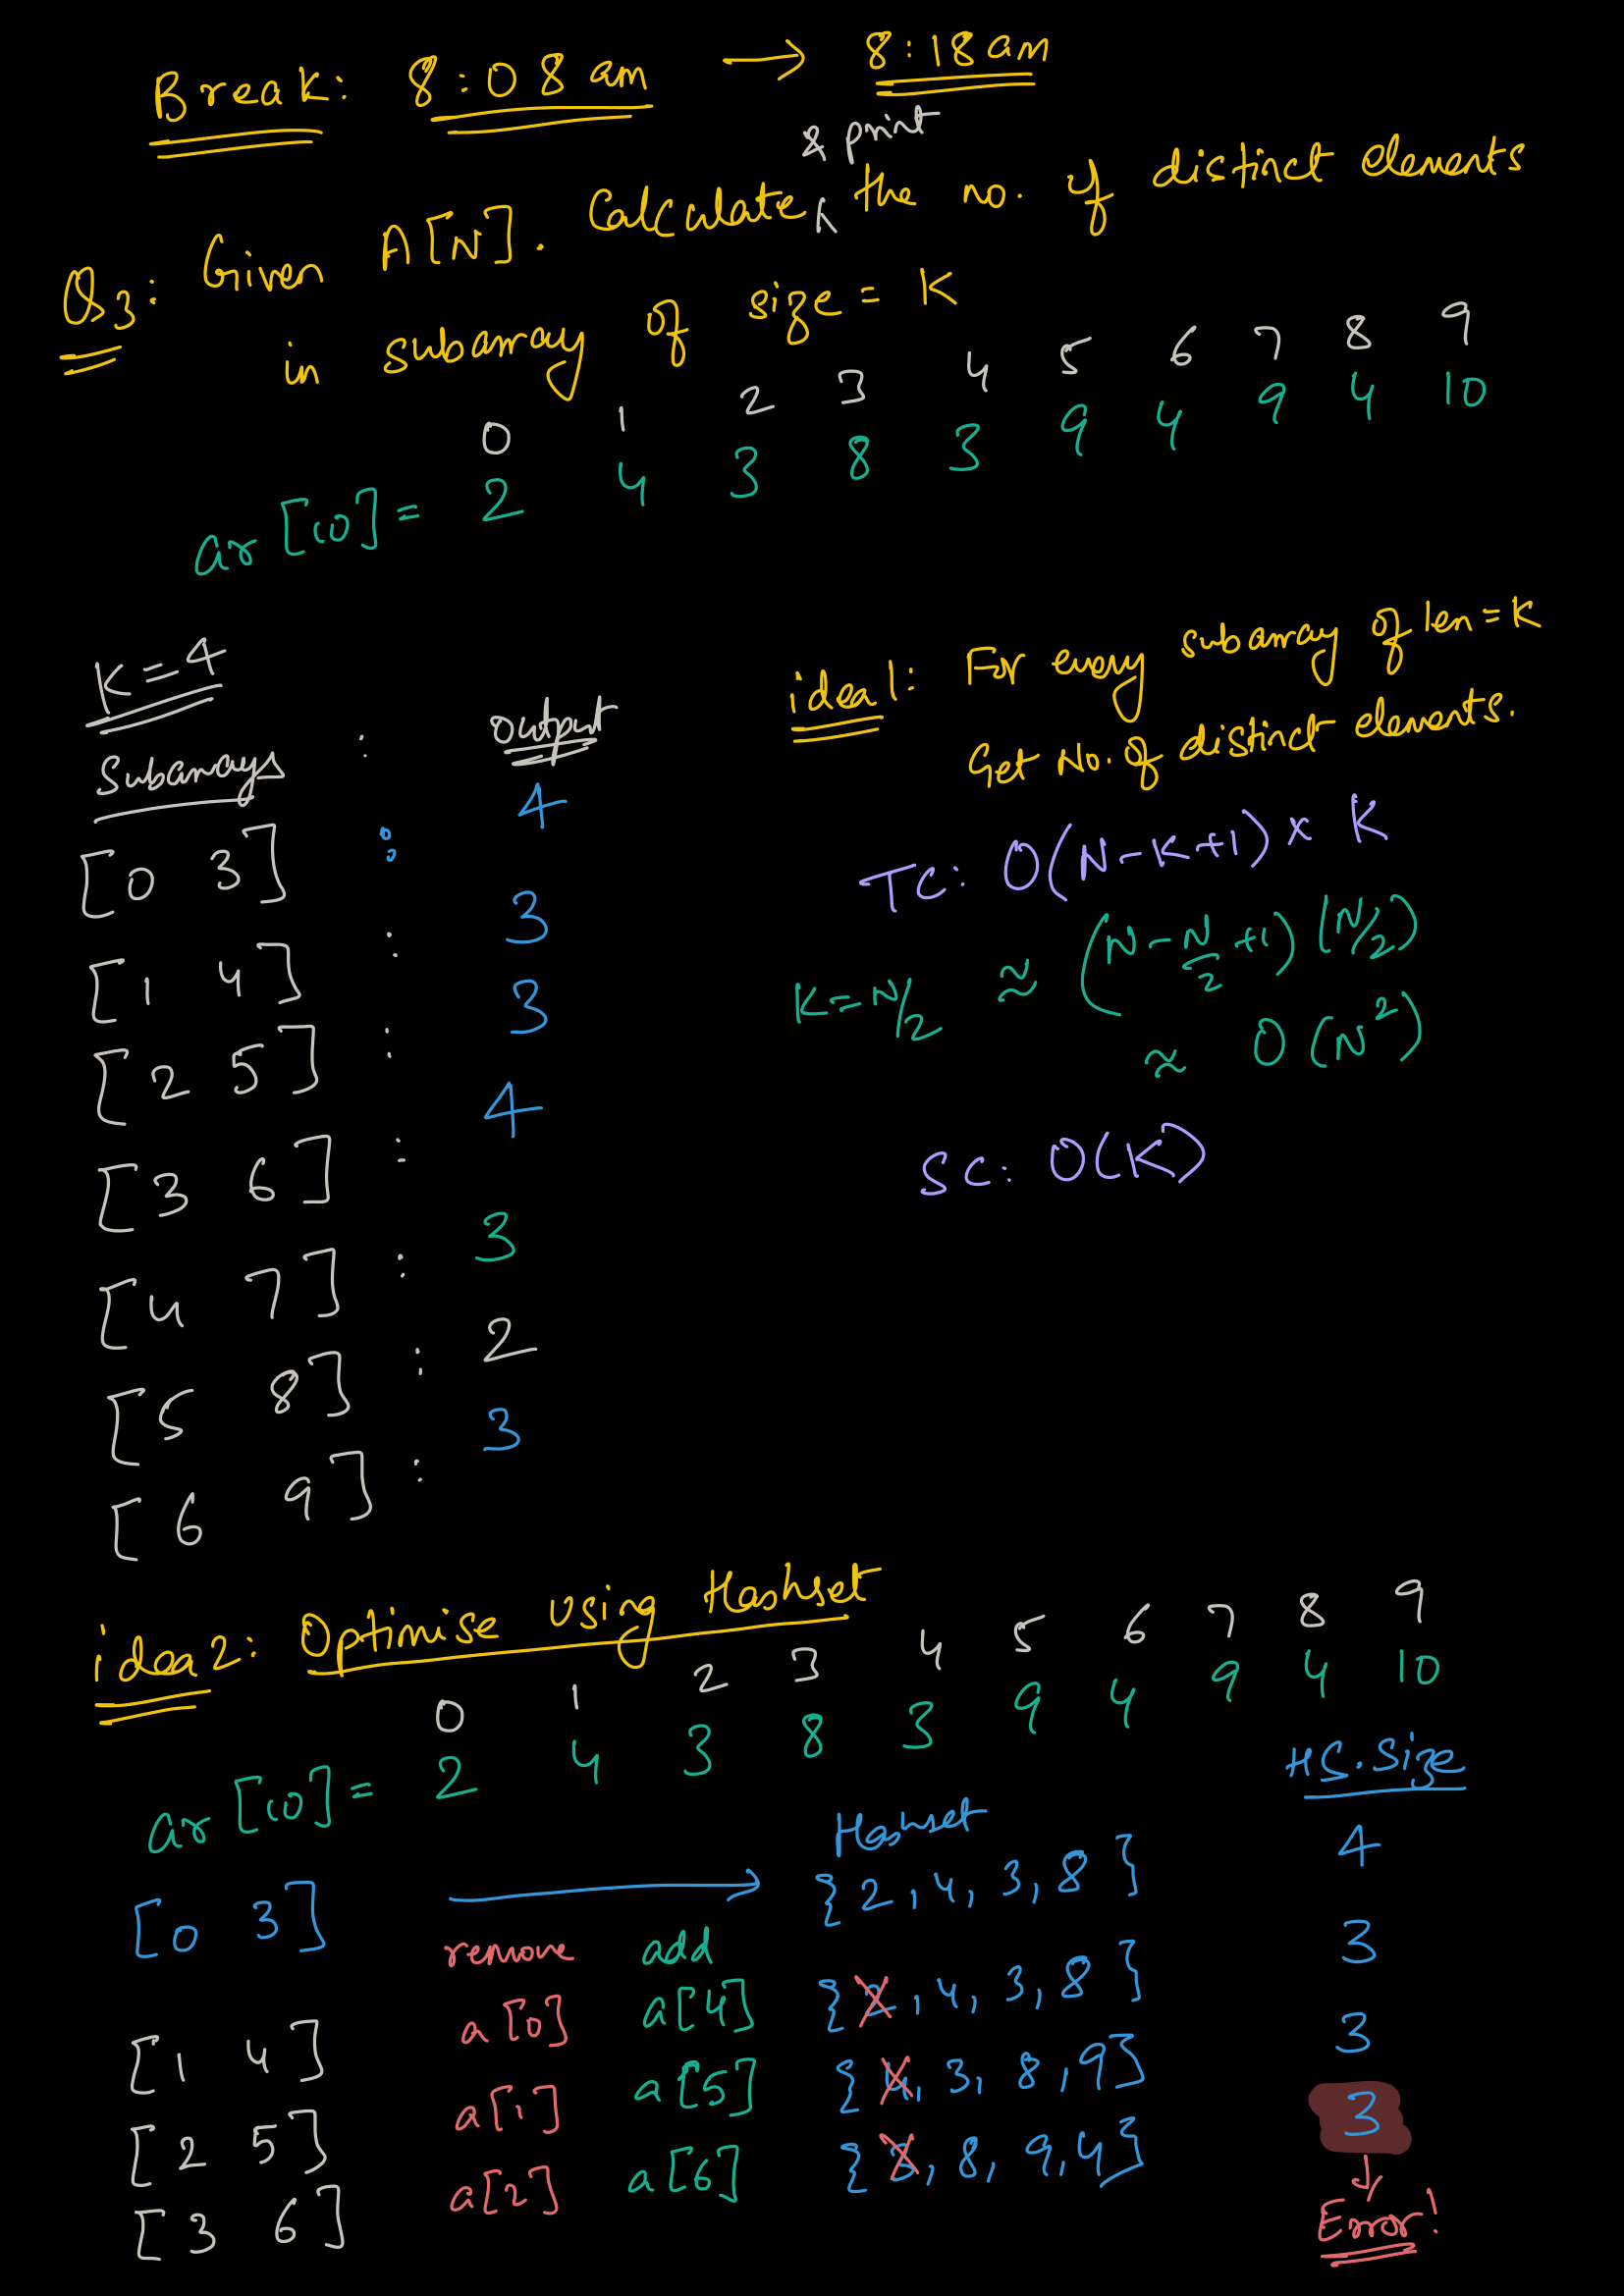 Break: 8:08am → 8:18am
& print
Q3: Given A[N]. Calculate ^ the no. of distinct elements
in subarray of size = K
0 1 2 3 4 5 6 7 8 9
ar[10] = 2 4 3 8 3 9 4 9 4 10
K=4
Subarrays : output
[0 3] : 4
[1 4] : 3
[2 5] : 3
[3 6] : 4
[4 7] : 3
[5 8] : 2
[6 9] : 3
idea1: For every subarray of len=K
Get No. of distinct elements.
TC: O(N-K+1) x K
K=N/2 ≈ (N-N/2+1)(N/2)
≈ O(N²)
SC: O(K)
idea2: Optimise using Hashset
0 1 2 3 4 5 6 7 8 9
ar[10] = 2 4 3 8 3 9 4 9 4 10
Hashset HS.Size
[0 3] → {2,4,3,8} 4
remove add
[1 4] a[0] a[4] {2,4,3,8} 3
[2 5] a[1] a[5] {4,3,8,9} 3
[3 6] a[2] a[6] {3,8,9,4} 3
↓
Error!